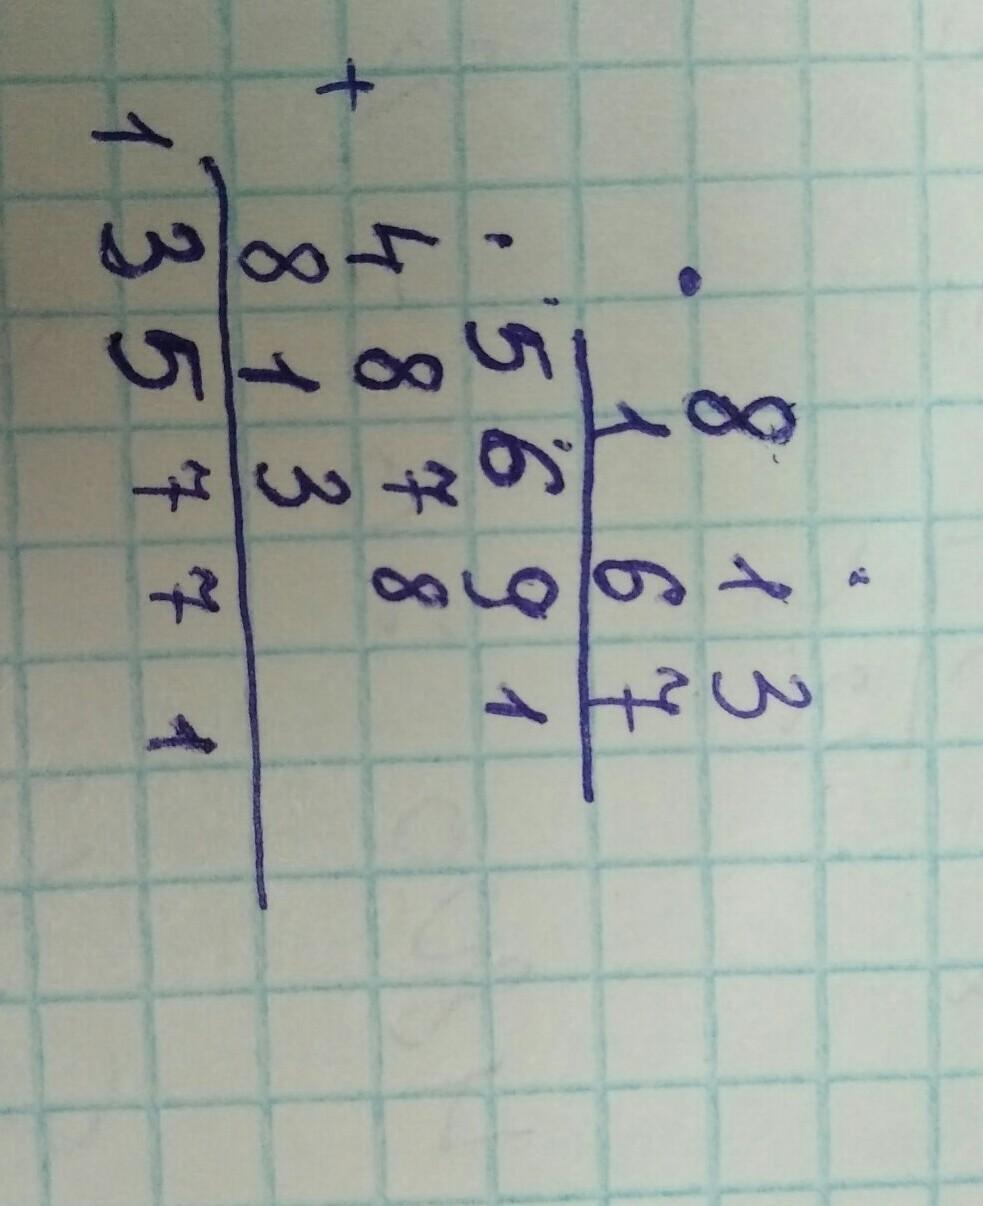 8 1 3
· 1 6 7
5 6 9 1
+ 4 8 7 8
8 1 3
1 3 5 7 7 1